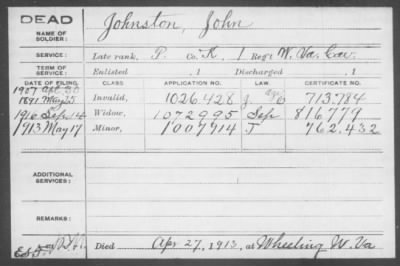 DEAD
NAME OF SOLDIER: Johnston, John
SERVICE: Late rank, P. Co. K, 1 Reg't W. Va. Cav.
TERM OF SERVICE: Enlisted , 1 Discharged , 1
DATE OF FILING. CLASS APPLICATION NO. LAW. CERTIFICATE NO.
1907
1891 May Invalid, 1026.428 713.784
1916 Sep 14 Widow, 1072995 Sep 816.779
1913 May 17 Minor, 1007914 J 762.432
ADDITIONAL SERVICES:
REMARKS:
Died Apr 27, 1913, at Wheeling W. Va